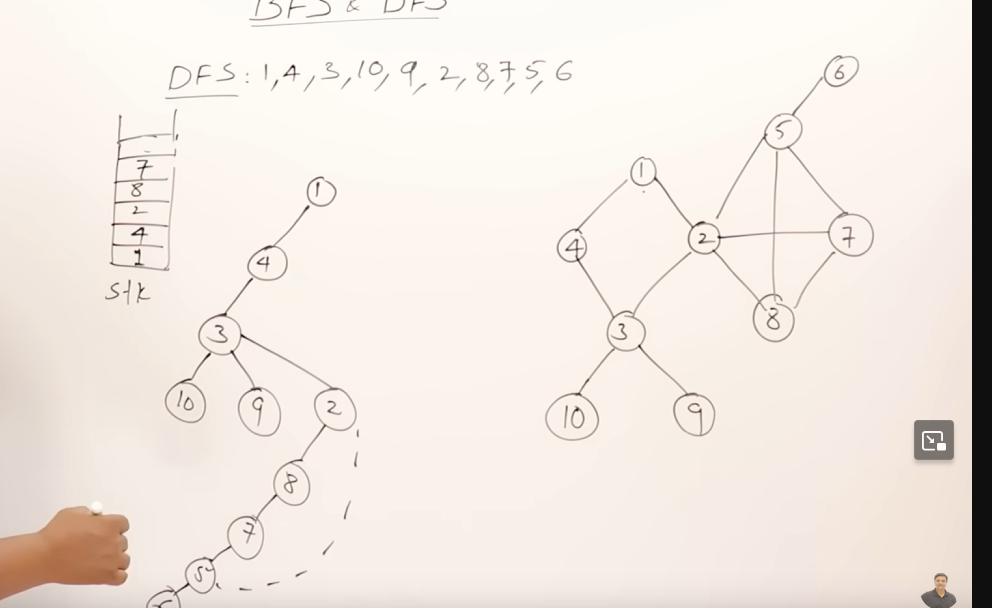 BFS & DFS
DFS : 1, 4, 3, 10, 9, 2, 8, 7, 5, 6
7
8
2
4
1
stk
1
4
3
10
9
2
8
7
5
6
5
1
4
2
7
3
8
10
9